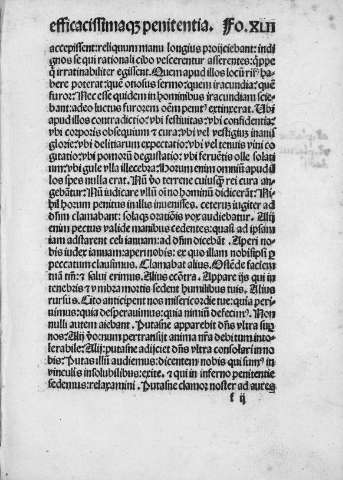 efficacissimaqꝫ penitentia. Fo.XLII
accepissent: reliquum manu longius proijciebant: indi
gnos se qui rationali cibo vescerentur asserentes: qꝛppe
q̃ irratinabiliter egissent. Quem apud illos locũ risꝰ ha
bere poterat: quẽ ociosus sermo: quem iracundia: quẽ
furor: Nec esse quidem in hominibus iracundiam scie
bant: adeo luctus furorem oẽm penitꝰ extinxerat. Ubi
apud illos contradictio: vbi festiuitas: vbi confidentia:
vbi corporis obsequium ⁊ cura: vbi vel vestigiũ inanis
glorie: vbi delitiarum expectatio: vbi vel tenuis vini co
gitatio: vbi pomorũ degustatio: vbi feruẽtis olle solati
um: vbi gule vlla illecebra: Horum enim omniũ apud il
los spes nulla erat. Nũ ꝟo terrene cuiusq̃ rei cura an
gebat̃: Nũ iudicare vllũ oĩno hominũ didicerãt: Ni
hil horum penitus in illis inuenisses. ceterũ iugiter ad
dñm clamabant: solaqꝫ orationis vox audiebatur. Alij
enim pectus valide manibus cedentes: quasi ad ipsam
iam adstarent celi ianuam: ad dñm dicebãt. Aperi no
bis iudex ianuam: aperi nobis: ex quo illam nobis ipsi ꝑ
peccatum clausimus. Clamabat alius. Ostẽde faciem
tuã m̃: ⁊ salui erimus. Alius ecõtra. Appare ijs qui in
tenebris ⁊ vmbra mortis sedent humilibus tuis. Alius
rursus. Cito anticipent nos misericordie tue: quia peri
uimus: quia desperauimus: quia nimiũ defecimꝰ. Non
nulli autem aiebant. Putasne apparebit dñs vltra su
nos: Alij ꝟo: num pertransijt anima nr̃a debitum into
lerabile: Alij: putasne adijciet dñs vltra consolari in no
bis: Putas illũ audiemus: dicentem nobis qui sumꝰ in
vinculis insolubilibus: exite. ⁊ qui in inferno penitentie
sedemus: relaxamini. Putasne clamor noster ad aures
f ij